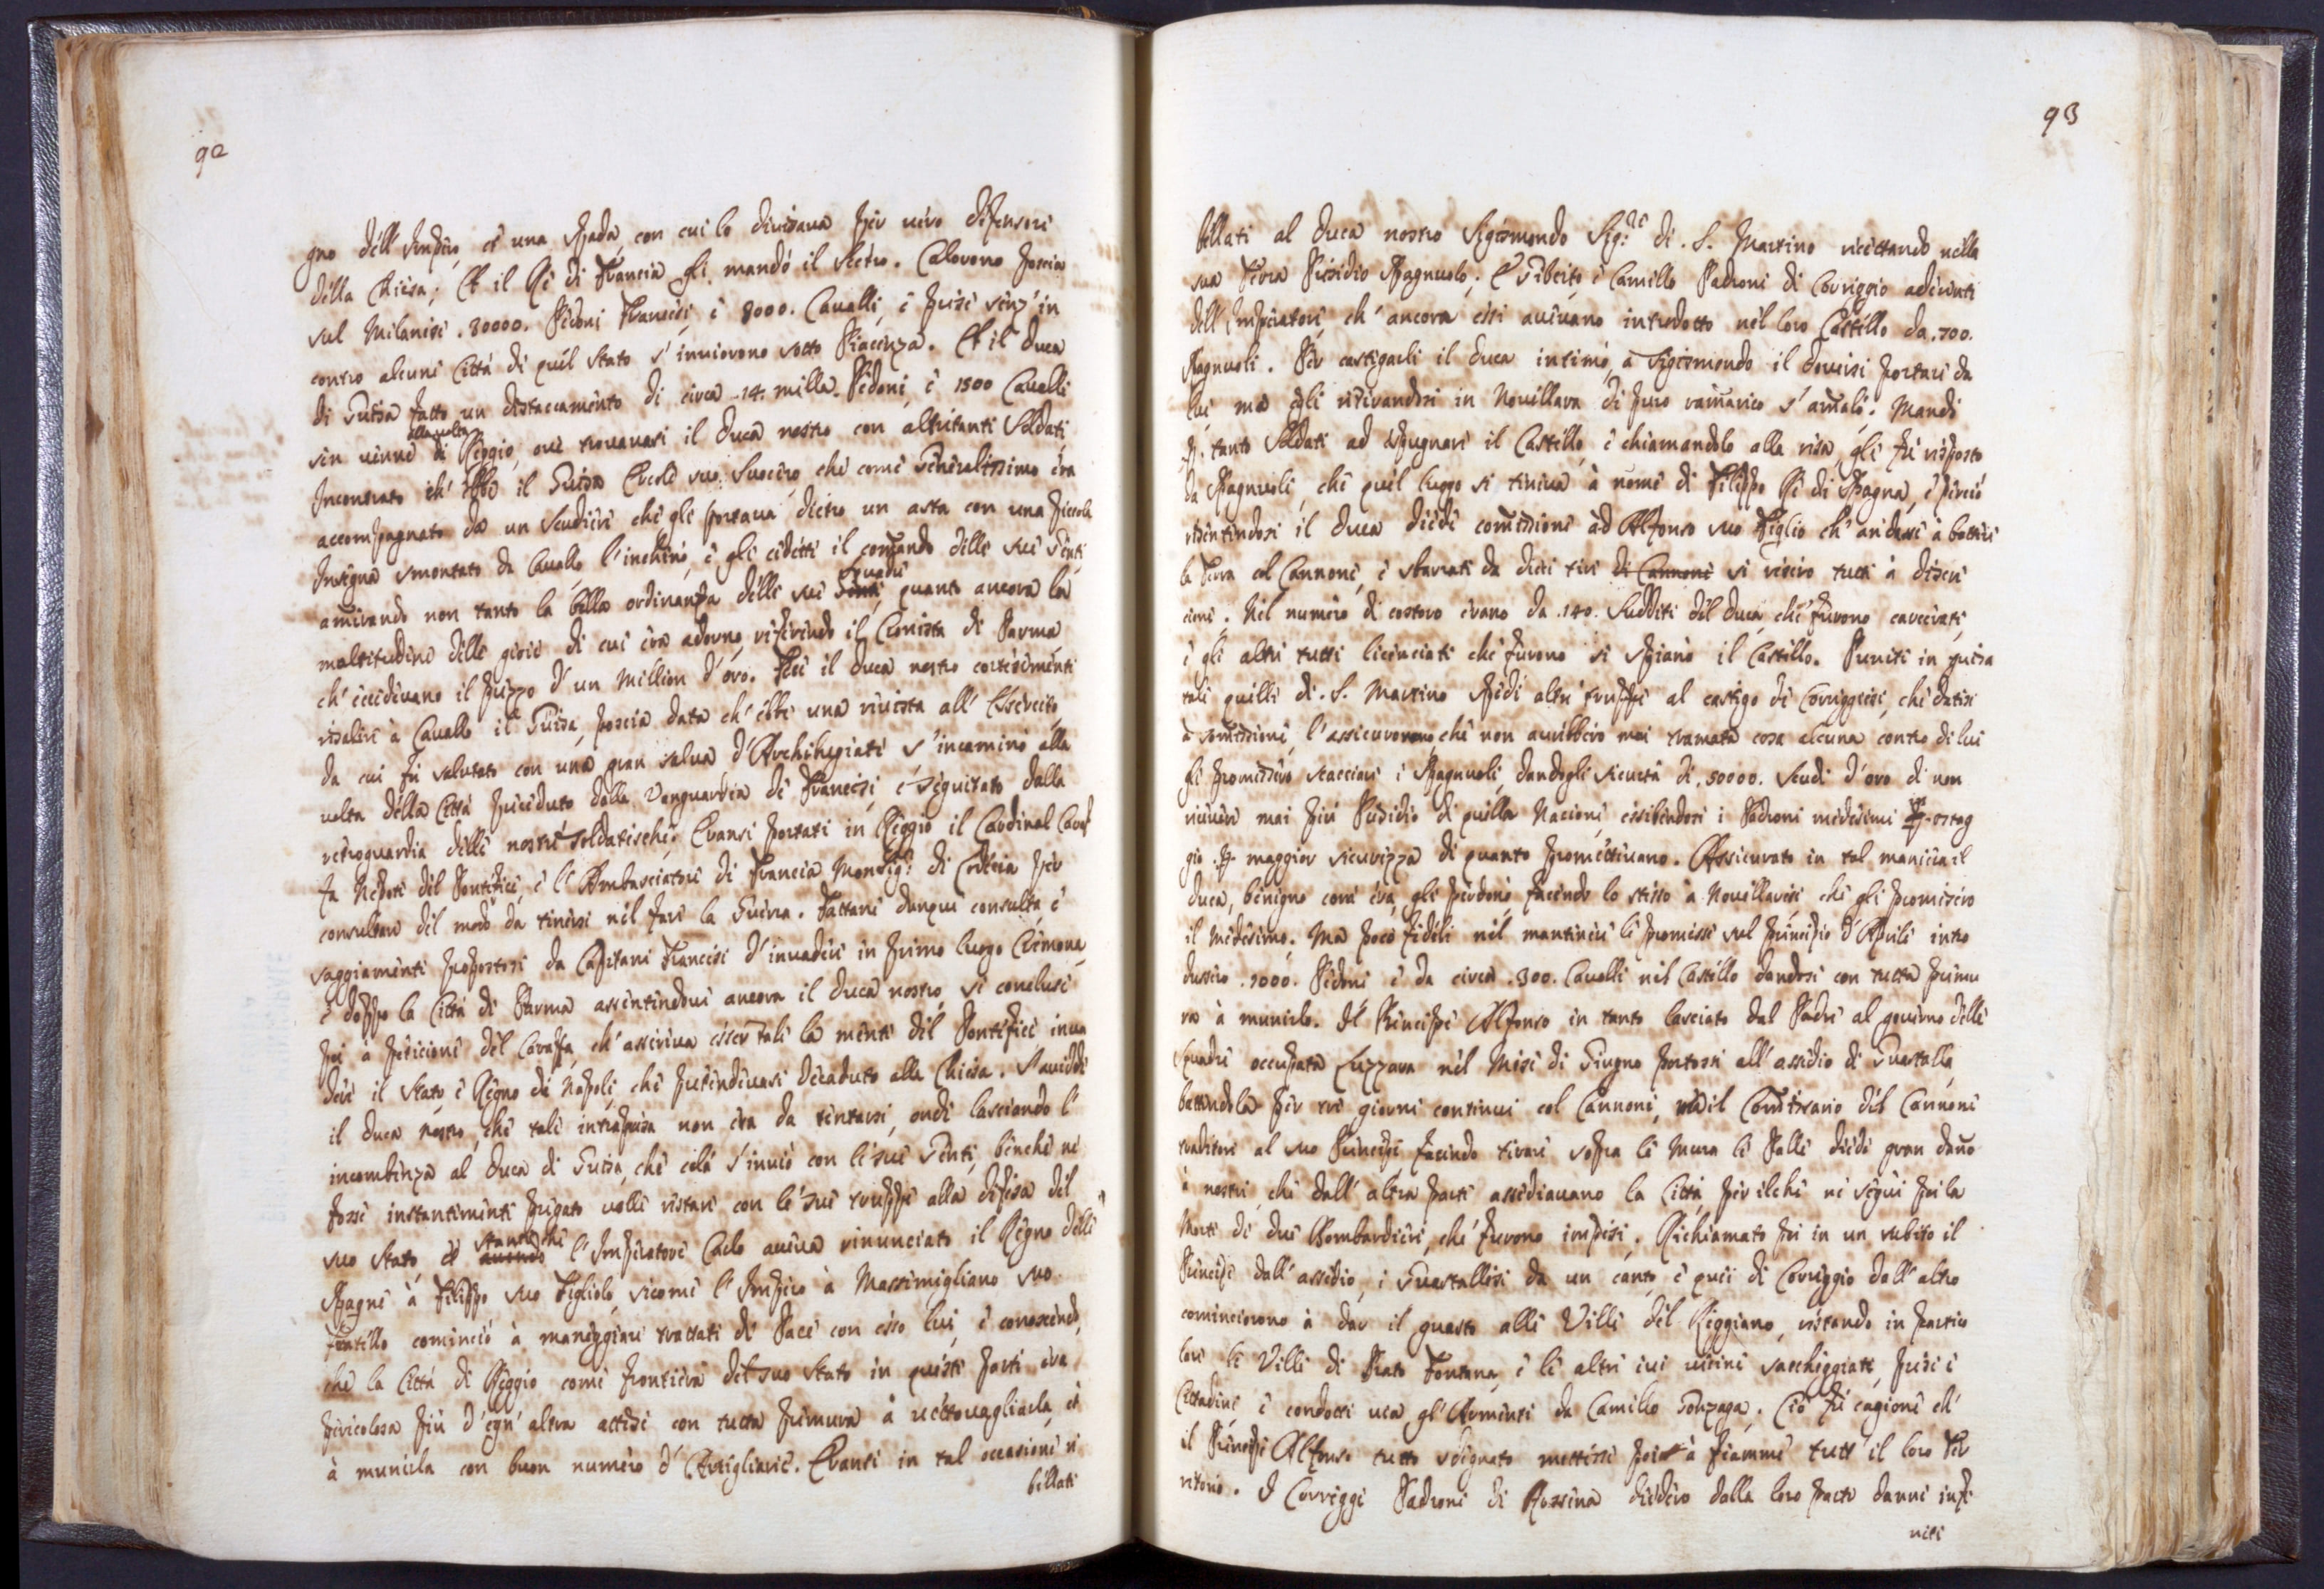 92
gno dell' Impero, et una spada, con cui lo divisava per vero difensore
della Chiesa; Et il Rè di Francia gli mandò il scetro. Calorono poscia
sul Milanese .30000. Pedoni Francesi, è 8000. Cavalli, è presi senz' in
contro alcune Città di quel stato s' inviorono sotto Piacenza. Et il Duca
di Guisa fatto un distaccamento di circa .14. milla. Pedoni, è 1500 Cavalli
sen venne alla volta di Reggio, ove trovavasi il Duca nostro con altretanti Soldati,
Incontrato ch' ebbe il Guisa Ercole suo Suocero, che come Generalissimo era
accompagnato da un Scudiere che gli portava dietro un asta con una piccola
Insegna smontato da Cavallo l' inchinò, è gli cedette il comando delle sue Genti,
amirando non tanto la bella ordinanza delle sue Genti Squadre, quanto ancora la
moltitudine delle gioie di cui era adorno, riferendo il Cronista di Parma
ch' eccedevano il prezzo d' un Million d' oro. Fece il Duca nostro cortesemente
risalire à Cavallo il Guisa, poscia data ch' ebbe una rivista all' Esercito,
da cui fù salutato con una gran salva d' Archibugiate s' incaminò alla
volta della Città preceduto dalla Vanguardia de Francesi, è seguitato dalla
retroguardia delle nostre soldatesche. Eransi portati in Reggio il Cardinal Caraf
fa Nepote del Pontefice, è l' Ambasciatore di Francia Monsig.r di
consultare del modo da tenersi nel fare la Guerra. Fattane dunque consulta, è
saggiamente propostosi da Capitani Francesi d' invadere in primo luogo Cremona,
è doppo la Città di Parma assentendovi ancora il Duca nostro, si concluse
poi à peticione del Carafa, ch' asseriva esser tale la mente del Pontefice, inva
dere il Stato, è Regno di Napoli, che pretendevasi decaduto alla Chiesa. S' avvidde
il Duca nostro, che tale intrapresa non era da tentarsi, onde lasciando l'
incombenza al Duca di Guisa, che colà s' inviò con le sue Genti, benche ne
fosse instantemente pregato volle restare con le sue truppe alla difesa del
suo Stato, et avendo stante che l' Imperatore Carlo aveva rinunciato il Regno delle
Spagne à Filippo suo Figliolo, sicome l' Impero à Massimigliano suo
fratello cominciò à maneggiare trattati di Pace con esso lui, è conoscendo,
che la Città di Reggio come frontiera del suo Stato in queste parti era
pericolosa più d' ogn' altra attese con tutta premura à vettovagliarla, et
à munirla con buon numero d' Artigliarie. Eransi in tal occasione ri
bellati
93
bellati al Duca nostro Sigismondo Sig.re di .S. Martino ricettando nella
sua Terra Presidio Spagnuolo; È Giberto, è Camillo Padroni di Correggio aderenti
dell' Imperatore, ch' ancora essi avevano introdotto nel loro Castello da .700.
Spagnuoli. Per castigarli il Duca intimò, a Sigismondo il doversi portare da
lui, ma egli ritirandosi in Novellara di puro ramarico s' amalò. Mandò
p. tanto Soldati ad espugnare il Castello, è chiamandolo alla resa, gli fù risposto
da Spagnuoli, che quel luogo si teneva à nome di Filippo Rè di Spagna, è perciò
risentendosi il Duca diede comissione ad Alfonso suo Figlio ch' andasse à battere
la Terra col Cannone, è sbarrati da dieci tiri di Cannone si resero tutti à discre
cione. Nel numero di costoro erano da .140. Sudditi del Duca, che furono carcerati,
è gli altri tutti licenciati che furono si spianò il Castello. Puniti in guisa
tale quelli di .S. Martino spedì altre truppe al castigo de Correggiesi, che datisi
à somissione, l' assicurorono, che non avrebbero mai tramata cosa alcuna contro di lui
gli promissero scacciare i Spagnuoli, dandogli sicurtà di .50000. Scudi d' oro di non
ricever mai più Presidio di quella Nacione, essibendosi i Padroni medesimi p. ostag
gio .p. maggior sicurezza di quanto promettevano. Assicurato in tal maniera il
Duca, benigno com' era, gli perdonò, facendo lo stesso à Novellaresi che gli promisero
il medesimo. Ma poco fedeli nel mantenere le promesse sul principio d' Aprile intro
dussero .2000. Pedoni è da circa .300. Cavalli nel Castello dandosi con tutta premu
ra à munirlo. Il Principe Alfonso in tanto lasciato dal Padre al governo delle
Squadre occupata Luzzara nel Mese di Giugno portossi all' assedio di Guastalla,
battendola per tre giorni continui col Cannone, mà il Comissario del Cannone
traditore al suo Principe, facendo tirare sopra le Mura le Palle diede gran dano
à nostri, che dall' altra parte assediavano la Città, per ilche ne seguì poi la
Morte di due Bombardieri, che furono impesi. Richiamato poi in un subito il
Principe dall' assedio, i Guastallesi da un canto, è quei di Correggio dall' altro
cominciorono à dar il guasto alle Ville del Reggiano, restando in partico
lare le Ville di Prato Fontana, è le altre ivi vicine saccheggiate, presi i
Cittadini, è condotti via gl' Armenti da Camillo Gonzaga. Ciò fù cagione ch'
il Principe Alfonso tutto sdegnato mettesse poi à fiamme tutt' il loro Ter
ritorio. I Correggi Padroni di Rossena diedero dalla loro parte danni infi
niti